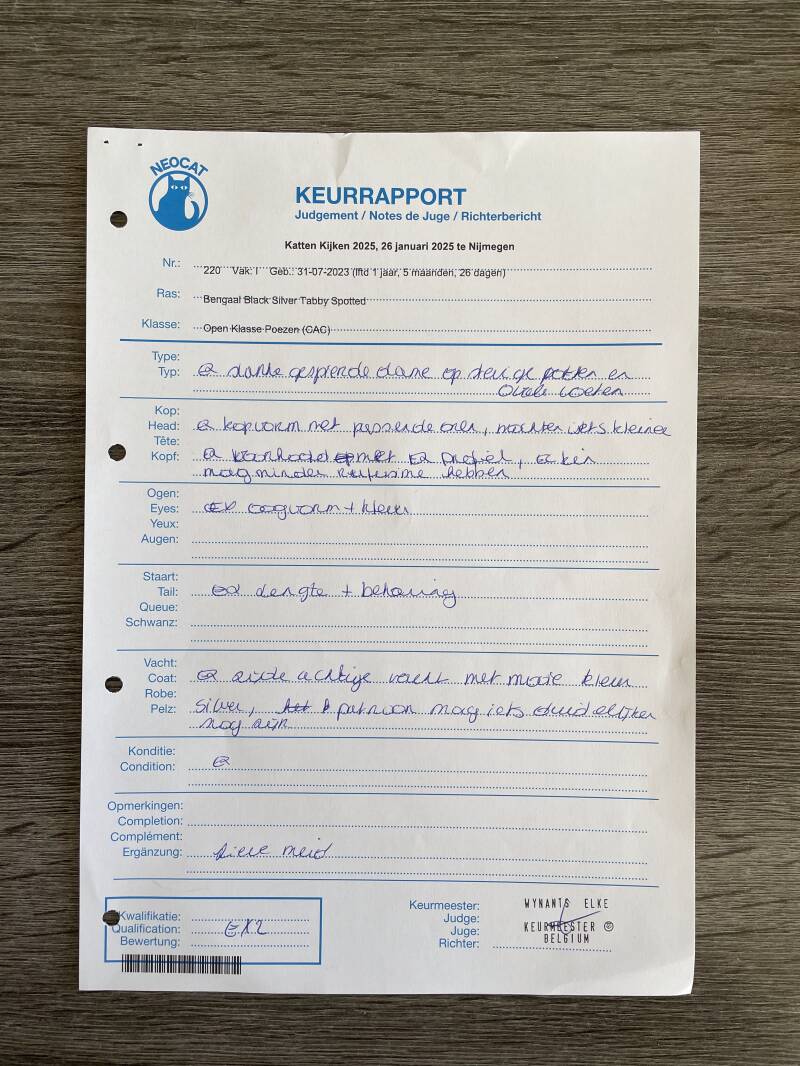 NEOCAT
KEURRAPPORT
Judgement / Notes de Juge / Richterbericht
Katten Kijken 2025, 26 januari 2025 te Nijmegen
Nr.: 220 Vak: I Geb.: 31-07-2023 (lftd 1 jaar, 5 maanden, 26 dagen)
Ras: Bengaal Black Silver Tabby Spotted
Klasse: Open Klasse Poezen (CAC)
Type:
Typ: Ex slanke gespierde dame op stevige poten en
ovale voeten
Kop:
Head: Ex kopvorm met passende oren, mochten iets kleiner
Tête:
Kopf: Ex met Ex profiel, Ex kin
mag minder hebben
Ogen:
Eyes: Ex oogvorm + kleur
Yeux:
Augen:
Staart:
Tail: Ex lengte + beharing
Queue:
Schwanz:
Vacht:
Coat: Ex zijde achtige vacht met mooie kleur
Robe:
Pelz: silver, patroon mag iets duidelijker
nog zijn
Konditie: Ex
Condition:
Opmerkingen:
Completion:
Complément:
Ergänzung: lieve meid
Kwalifikatie:
Qualification: EX2
Bewertung:
Keurmeester: WYNANTS ELKE
Judge:
Juge: KEURMEESTER
Richter: BELGIUM